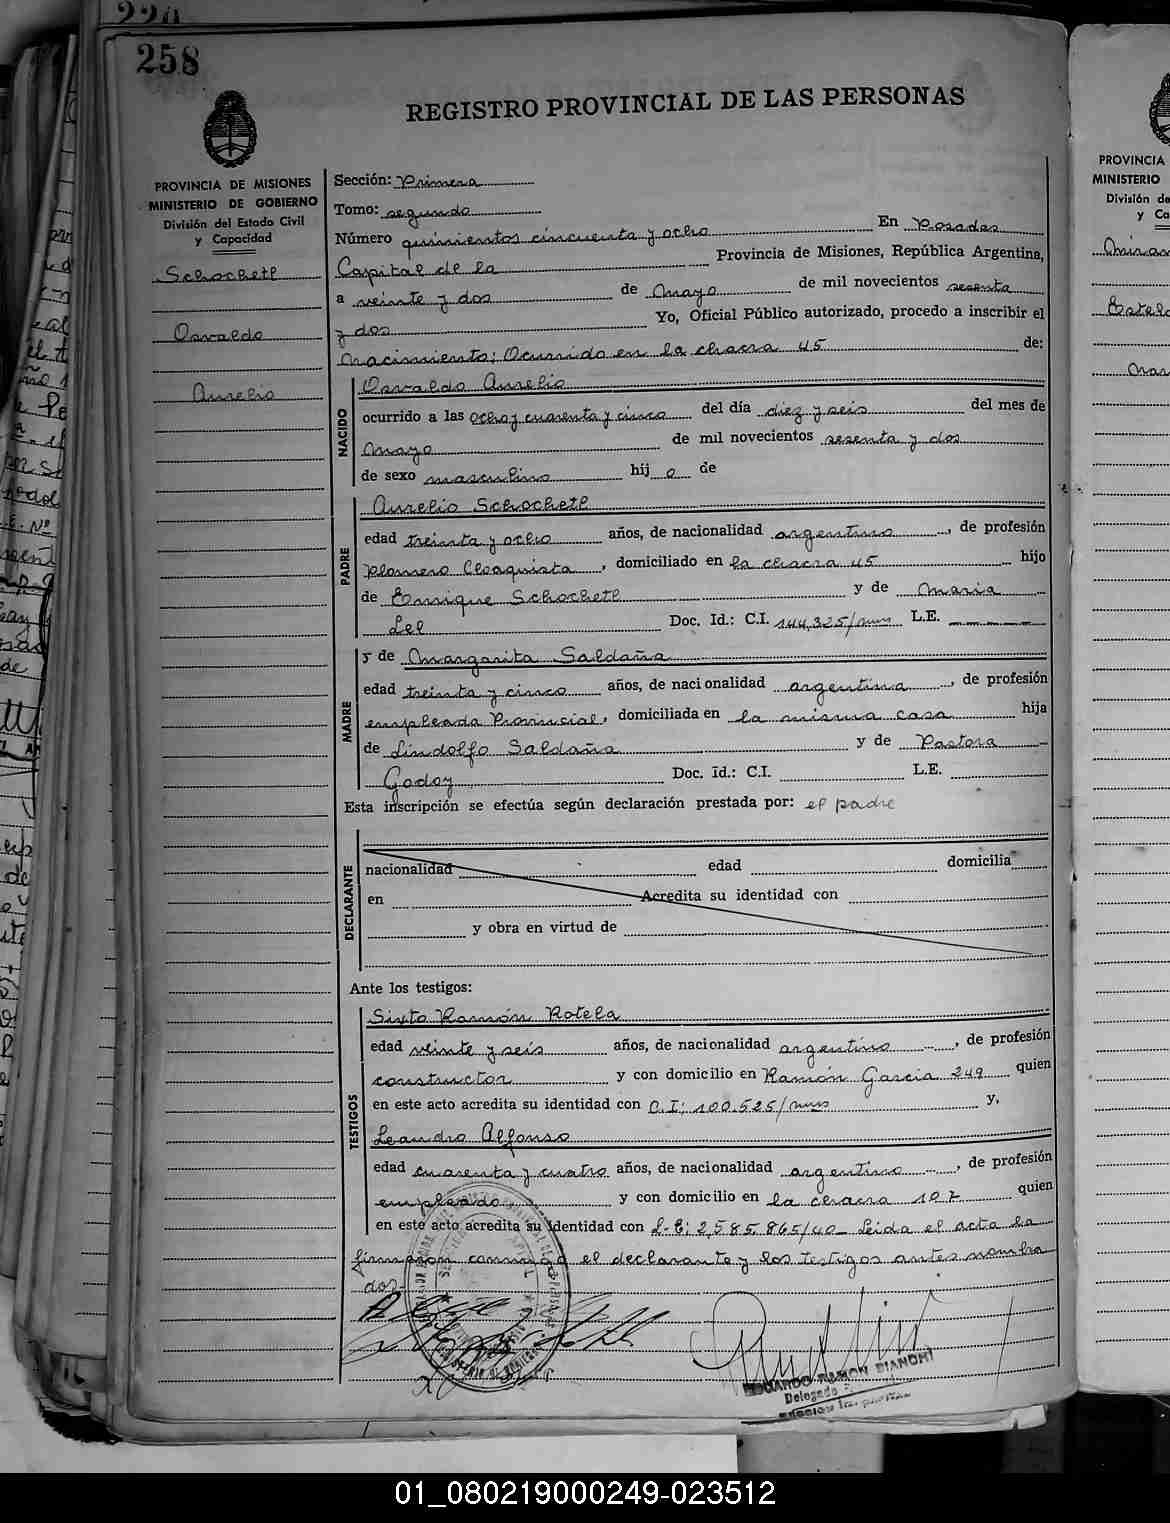 258
REGISTRO PROVINCIAL DE LAS PERSONAS
PROVINCIA DE MISIONES
MINISTERIO DE GOBIERNO
División del Estado Civil
y Capacidad
Schochetl
Osvaldo
Aurelio
Sección: Primera
Tomo: segundo
Número quinientos cincuenta y ocho En Posadas
Capital de la Provincia de Misiones, República Argentina,
a veinte y dos de Mayo de mil novecientos sesenta
y dos Yo, Oficial Público autorizado, procedo a inscribir el
Nacimiento; Ocurrido en la chacra 45 de:
NACIDO
Osvaldo Aurelio
ocurrido a las ocho y cuarenta y cinco del día diez y seis del mes de
Mayo de mil novecientos sesenta y dos
de sexo masculino hij o de
PADRE
Aurelio Schochetl
edad treinta y ocho años, de nacionalidad argentino, de profesión
Plomero Cloaquista, domiciliado en la chacra 45 hijo
de Enrique Schochetl y de Maria
Lel Doc. Id.: C.I. 144,325/mns L.E.
MADRE
y de Margarita Saldaña
edad treinta y cinco años, de nacionalidad argentina, de profesión
empleada Provincial, domiciliada en la misma casa hija
de Lindolfo Saldaña y de Pastora
Godoy Doc. Id.: C.I. L.E.
Esta inscripción se efectúa según declaración prestada por: el padre
DECLARANTE
nacionalidad edad domicilia
en Acredita su identidad con
y obra en virtud de
Ante los testigos:
TESTIGOS
Sixto Ramón Rotela
edad veinte y seis años, de nacionalidad argentino, de profesión
constructor y con domicilio en Ramón Garcia 249 quien
en este acto acredita su identidad con C.I: 100.525/mns y,
Leandro Alfonso
edad cuarenta y cuatro años, de nacionalidad argentino, de profesión
empleado y con domicilio en la chacra 107 quien
en este acto acredita su identidad con L-E: 2,585.865/40 Leida el acta la
firmaron conmigo el declarante y los testigos antes nombra
dos.
EDGARDO RAMON BIANCHI
Delegado
PROVINCIA
MINISTERIO
División de
y Ca
01_080219000249-023512